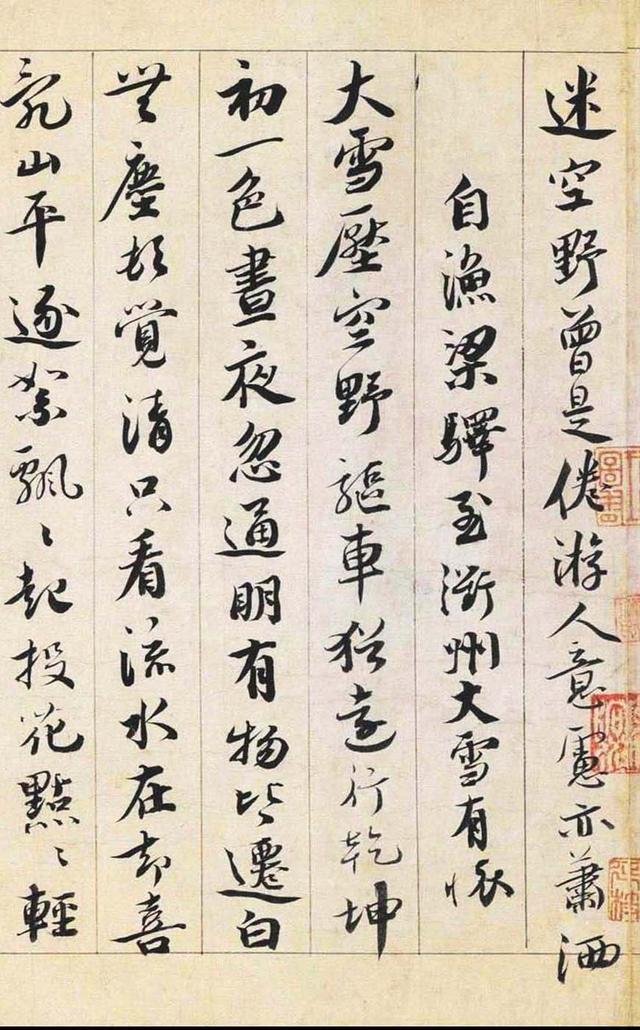 迷空野曾是倦游人意慮亦蕭洒
自漁梁驛至衢州大雪有懷
大雪壓空野驅車猶遠行乾坤
初一色晝夜忽通明有物皆遷白
無塵頓覺清只看流水在却喜
亂山平逐絮飄〻起投花點〻輕